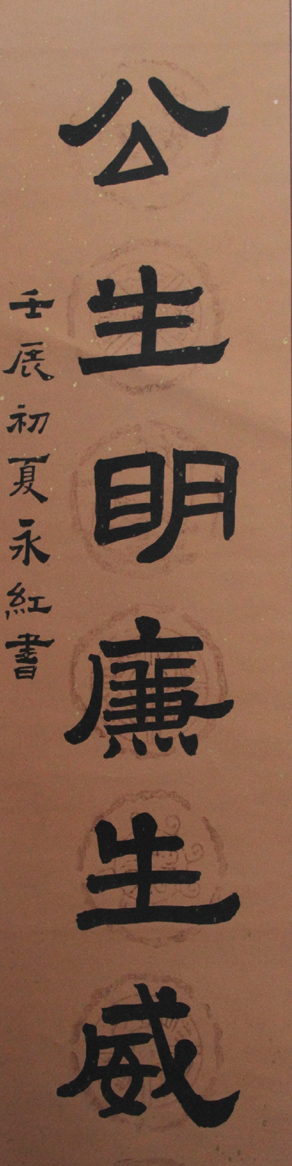 公生明廉生威
壬辰初夏永红書